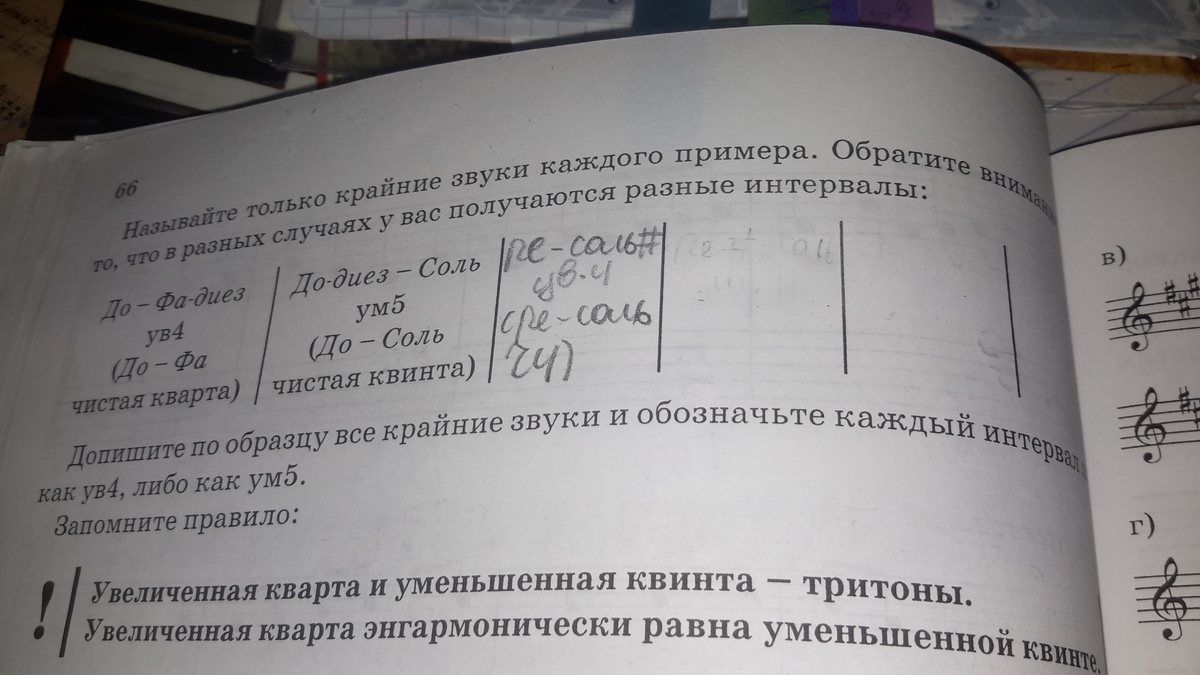 66
Называйте только крайние звуки каждого примера. Обратите вниман
то, что в разных случаях у вас получаются разные интервалы:
До – Фа-диез
ув4
(До – Фа
чистая кварта)
До-диез – Соль
ум5
(До – Соль
чистая квинта)
ре-соль#
ув.4
(ре-соль
ч4)
Допишите по образцу все крайние звуки и обозначьте каждый интервал
как ув4, либо как ум5.
Запомните правило:
! Увеличенная кварта и уменьшенная квинта – тритоны.
Увеличенная кварта энгармонически равна уменьшенной квинте.
в)
г)